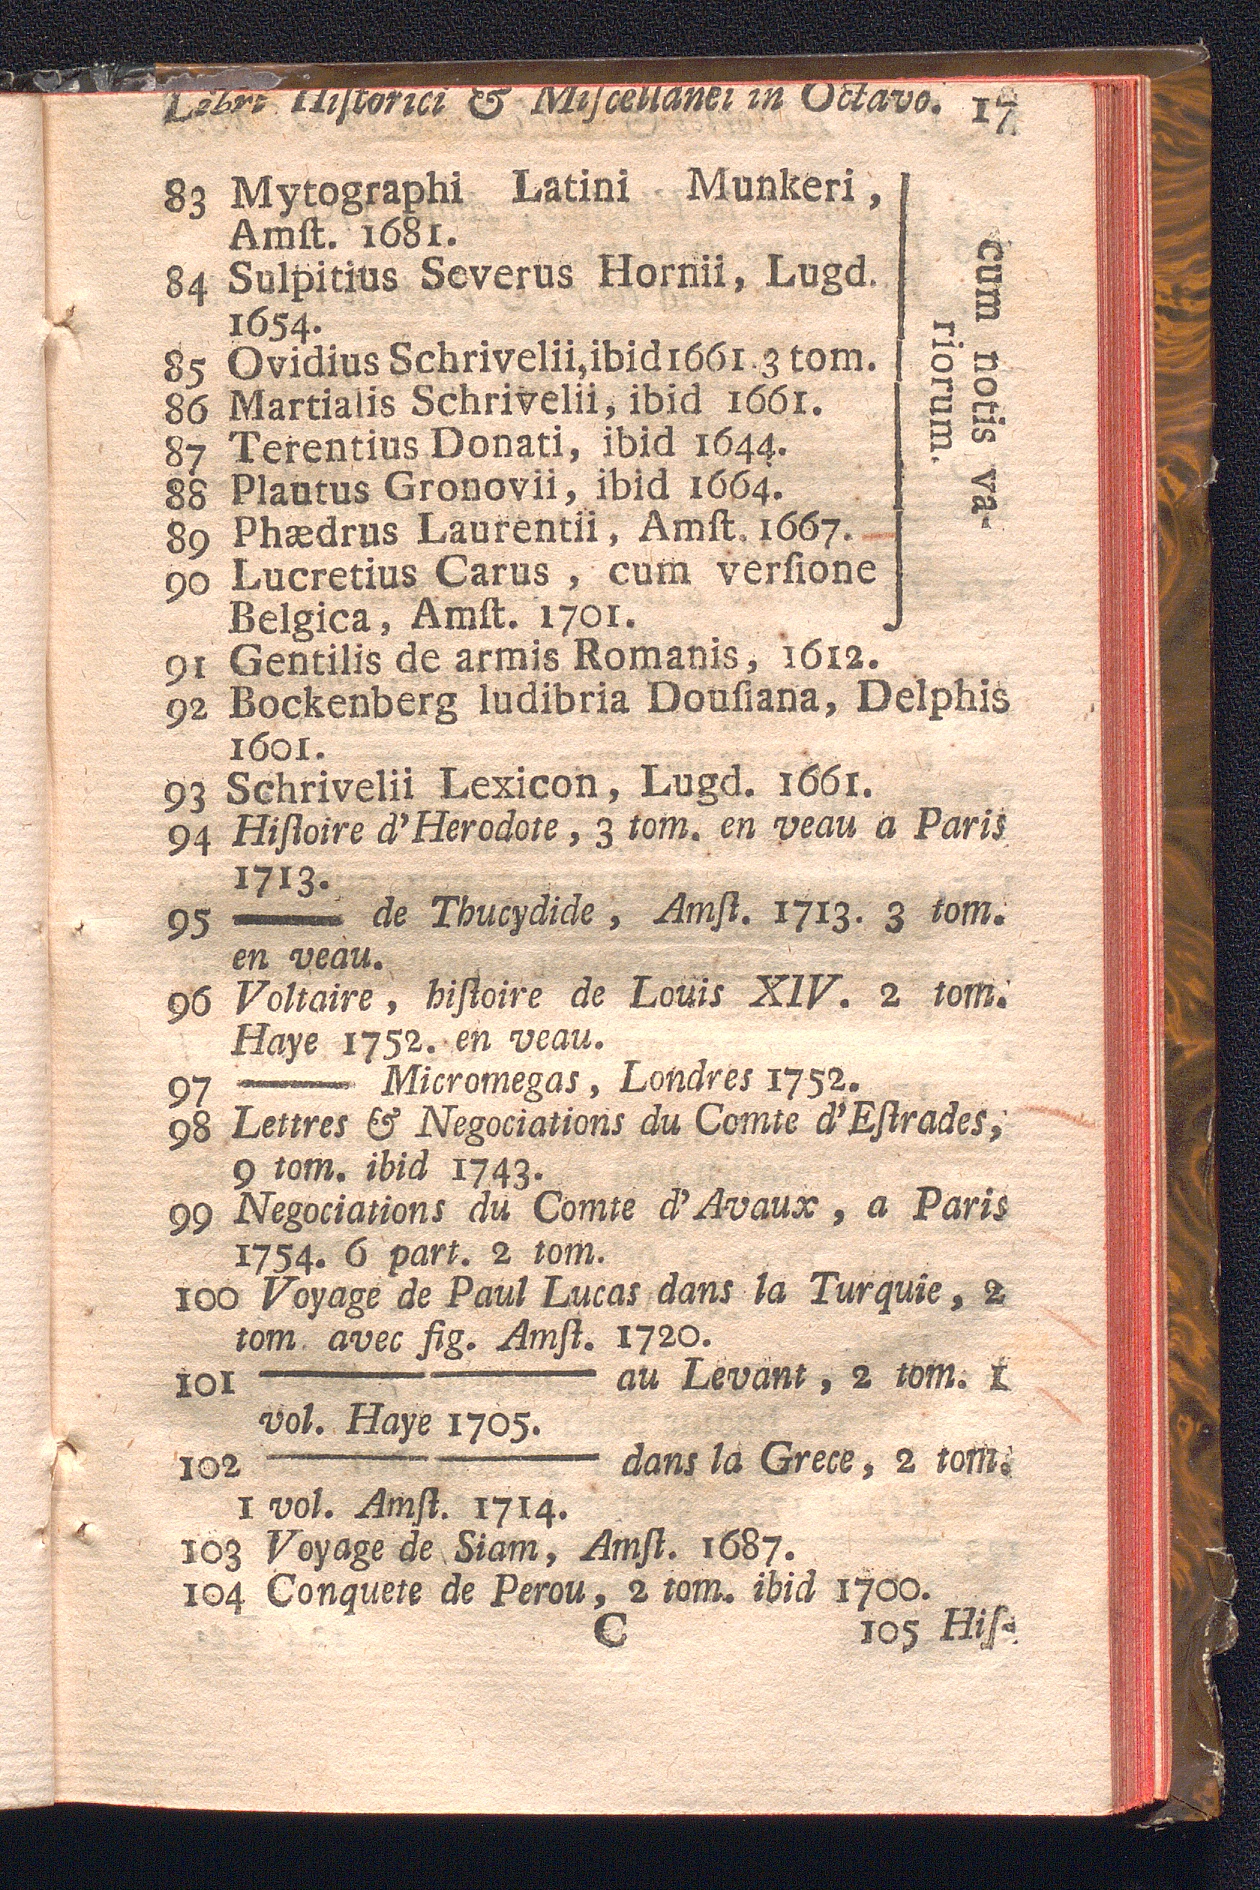 Libri Hiſtorici & Miſcellanei in Octavo. 17
83 Mytographi Latini Munkeri,
Amſt. 1681.
84 Sulpitius Severus Hornii, Lugd.
1654.
85 Ovidius Schrivelii, ibid 1661. 3 tom.
86 Martialis Schrivelii, ibid 1661.
87 Terentius Donati, ibid 1644.
88 Plautus Gronovii, ibid 1664.
89 Phædrus Laurentii, Amſt. 1667.
90 Lucretius Carus, cum verſione
Belgica, Amſt. 1701.
cum notis va-
riorum.
91 Gentilis de armis Romanis, 1612.
92 Bockenberg ludibria Douſiana, Delphis
1601.
93 Schrivelii Lexicon, Lugd. 1661.
94 Hiſtoire d'Herodote, 3 tom. en veau a Paris
1713.
95 —— de Thucydide, Amſt. 1713. 3 tom.
en veau.
96 Voltaire, hiſtoire de Louis XIV. 2 tom.
Haye 1752. en veau.
97 —— Micromegas, Londres 1752.
98 Lettres & Negociations du Comte d'Eſtrades,
9 tom. ibid 1743.
99 Negociations du Comte d'Avaux, a Paris
1754. 6 part. 2 tom.
100 Voyage de Paul Lucas dans la Turquie, 2
tom. avec fig. Amſt. 1720.
101 —— —— au Levant, 2 tom. 1
vol. Haye 1705.
102 —— —— dans la Grece, 2 tom.
1 vol. Amſt. 1714.
103 Voyage de Siam, Amſt. 1687.
104 Conquete de Perou, 2 tom. ibid 1700.
C 105 Hiſ-